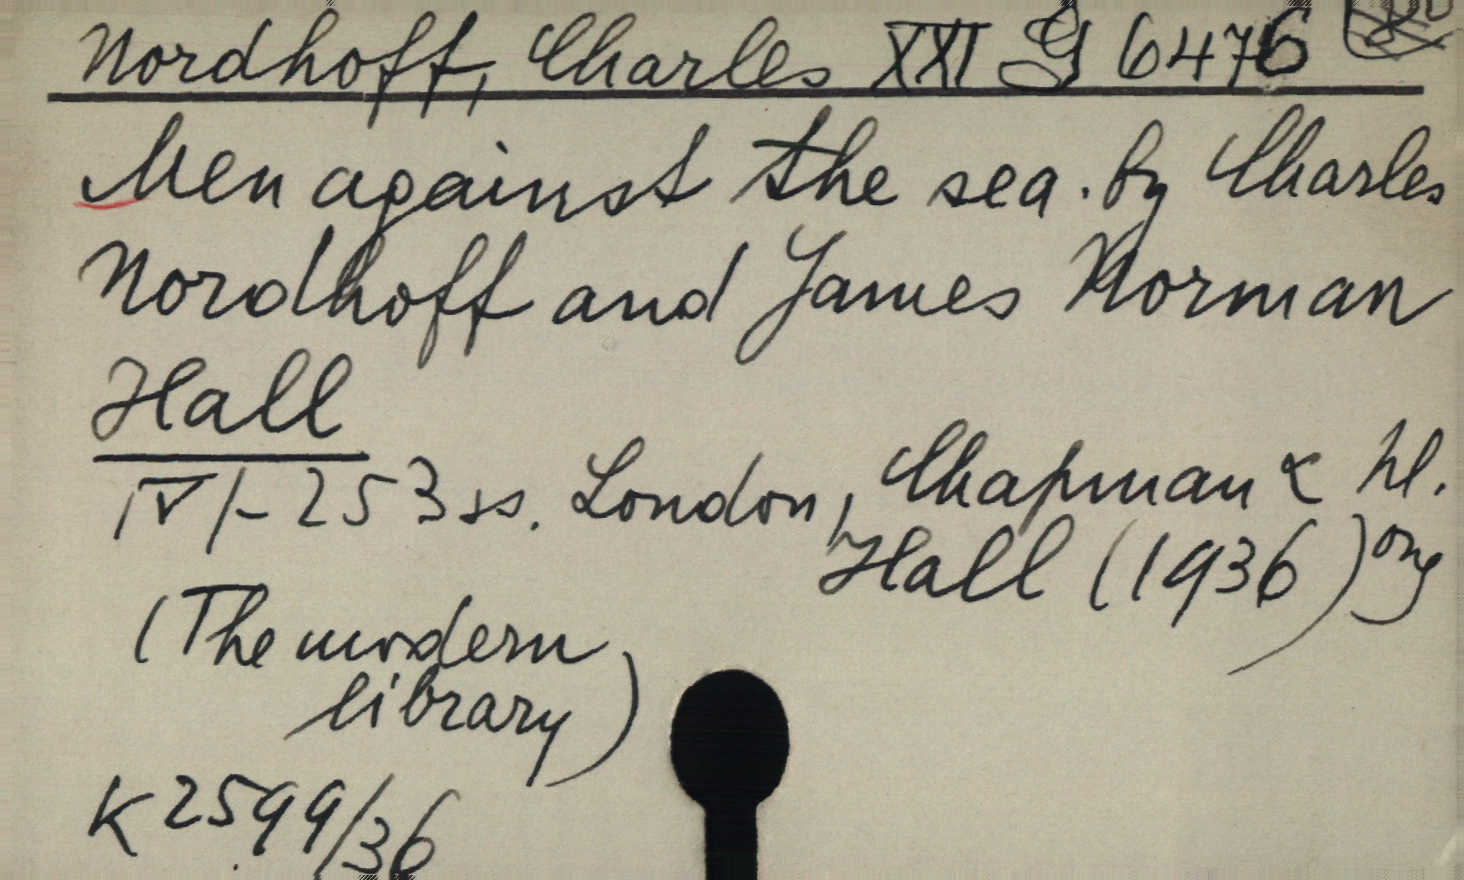 Nordhoff, Charles XXI G 6476
Men against the sea. by Charles
Nordhoff and James Norman
Hall
IV/-253 ss. London, Chapman & H.
Hall (1936)
(The modern
library)
K 2599/36